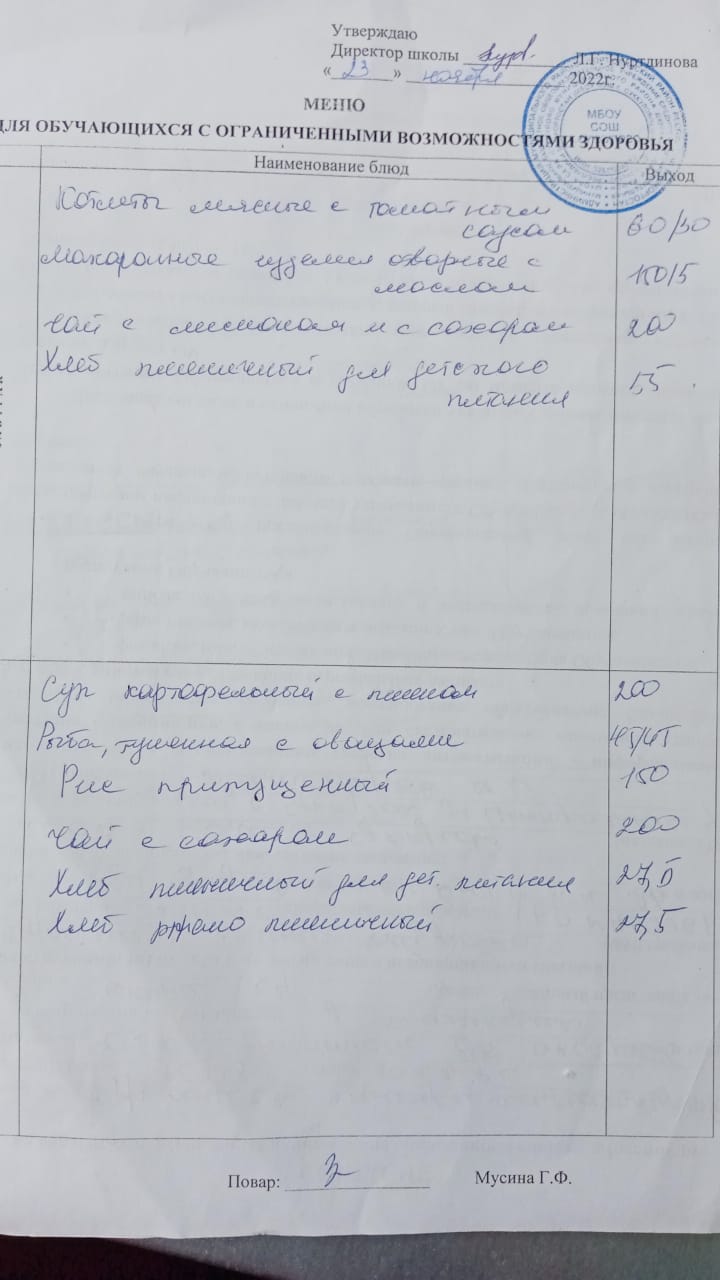 Утверждаю
Директор школы Л.Г. Нуртдинова
« 23 » ноября 2022г.
МЕНЮ
ДЛЯ ОБУЧАЮЩИХСЯ С ОГРАНИЧЕННЫМИ ВОЗМОЖНОСТЯМИ ЗДОРОВЬЯ
Наименование блюд Выход
Котлеты мясные с томатным
соусом 60/30
Макаронные изделия отварные с
маслом 150/5
Чай с лимоном и с сахаром 200
Хлеб пшеничный для детского
питания 55
Суп картофельный с пшеном 200
Рыба, тушенная с овощами 45/45
Рис припущенный 150
Чай с сахаром 200
Хлеб пшеничный для дет. питания 27,5
Хлеб ржано пшеничный 27,5
Повар: Мусина Г.Ф.
МБОУ
СОШ